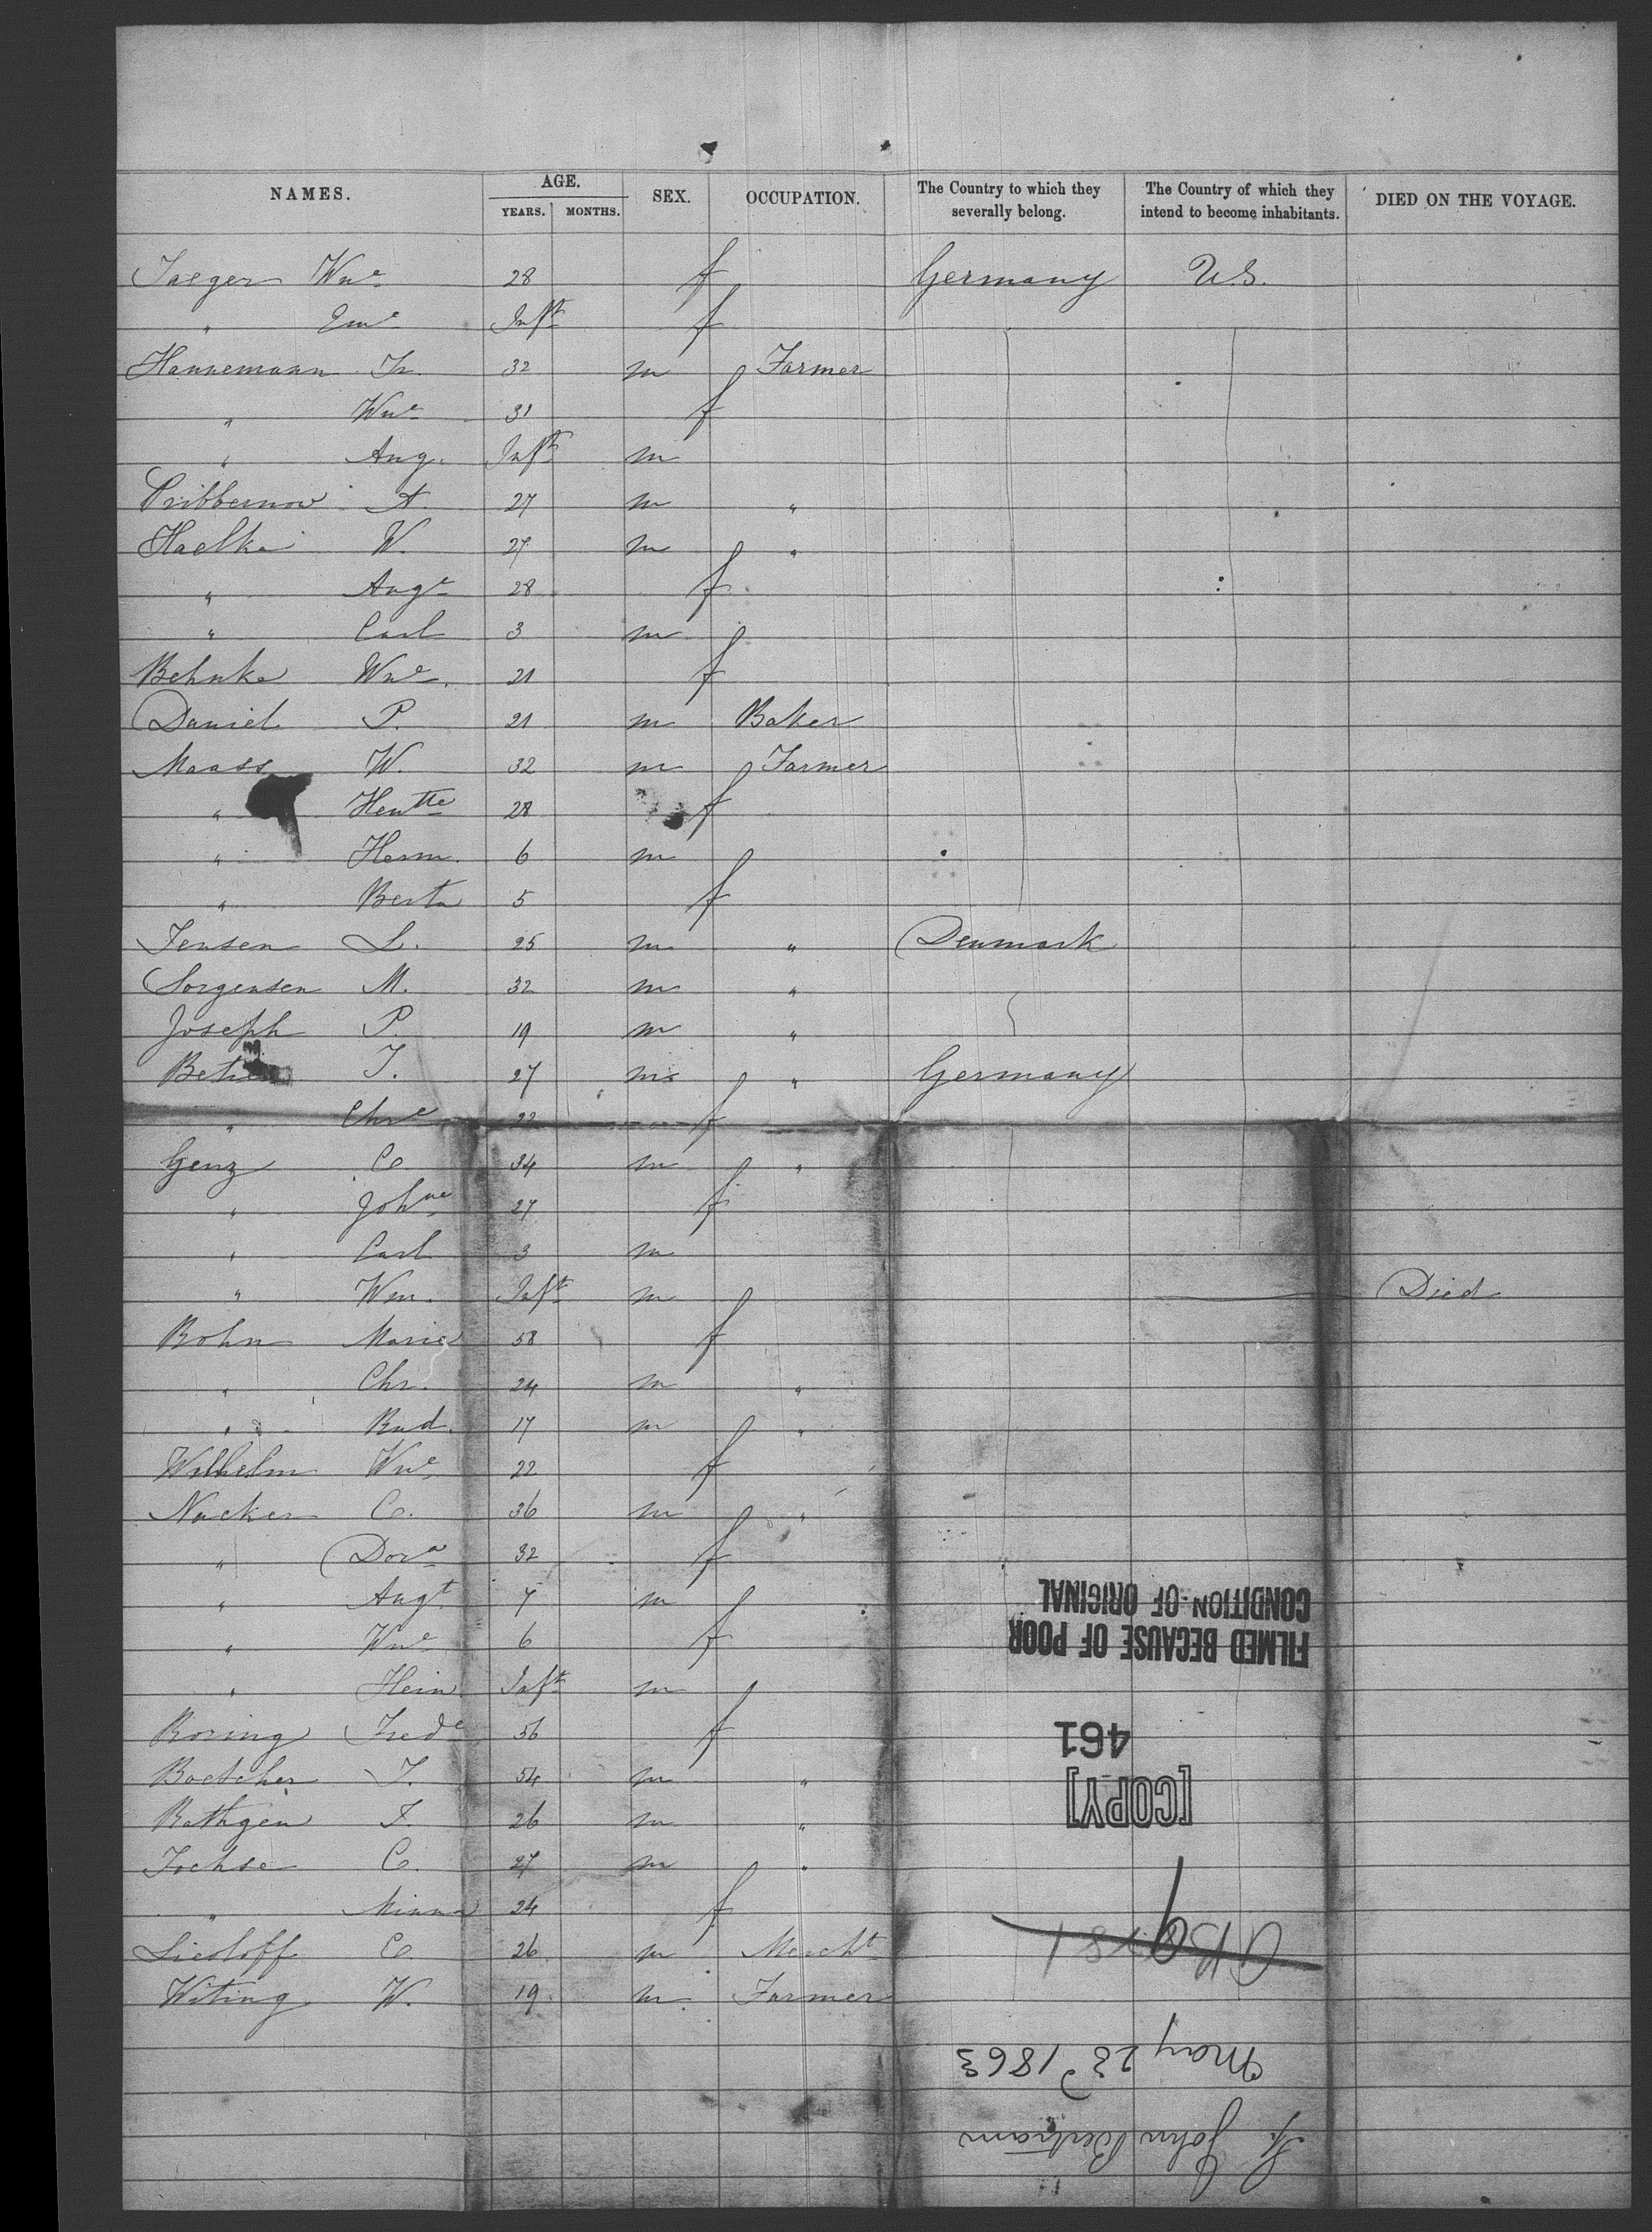 NAMES. AGE. SEX. OCCUPATION. The Country to which they severally belong. The Country of which they intend to become inhabitants. DIED ON THE VOYAGE.
YEARS. MONTHS.
Jaeger Wne 28 f Germany U.S.
" Eme Inft f
Hannemann Fr. 32 m Farmer
" Wne 31 f
" Aug. Inft m
Pribbernow A. 27 m "
Haelke W. 27 m "
" Auge 28 f
" Carl 3 m
Behnke Wne. 21 f
Daniel P. 21 m Baker
Maass W. 32 m Farmer
" Hentte 28 f
" Herm. 6 m
" Berta 5 f
Jensen L. 25 m " Denmark
Sorgensen M. 32 m "
Joseph P. 19 m "
J. 27 m " Germany
" Chre 22 f
Genz C. 34 m "
" Johne 27 f
" Carl 3 m
" Wm. Inft m Died
Bohn Marie 58 f
" Chr. 24 m "
" Rud. 17 m "
Wilhelm Wne 22 f
Nacker C. 36 m "
" Dora 32 f
" Augt 7 m
" Wne 6 f
" Hein. Inft m
Roring Frede 56 f
Boetcher J. 54 m "
Rathgen F. 26 m "
Jochse C. 27 m "
" Minna 24 f
Licoloff C. 26 m Mercht
Witing W. 19 m Farmer
S. John Bertram
May 23d 1863
[COPY]
461
FILMED BECAUSE OF POOR
CONDITION OF ORIGINAL